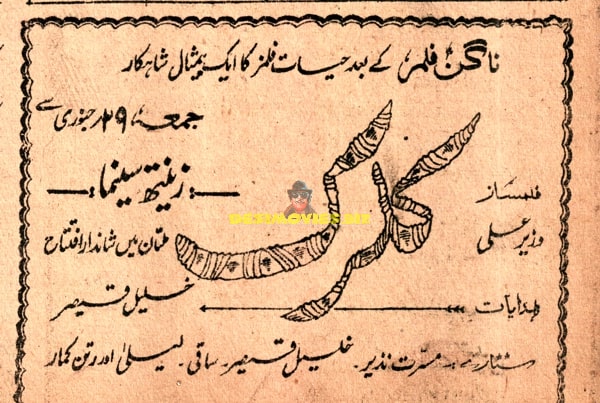 ناگن فلمز کے بعد حیات فلمز کا ایک بیمثال شاہکار
جمعہ ۲۹ جنوری سے
کلرک
فلمساز :زینتھ سینما:
وزیر علی ملتان میں شاندار افتتاح
ہدایات خلیل قیصر
ستارے مسرت نذیر۔ خلیل قیصر۔ ساقی۔ لیلیٰ اور رتن کمار